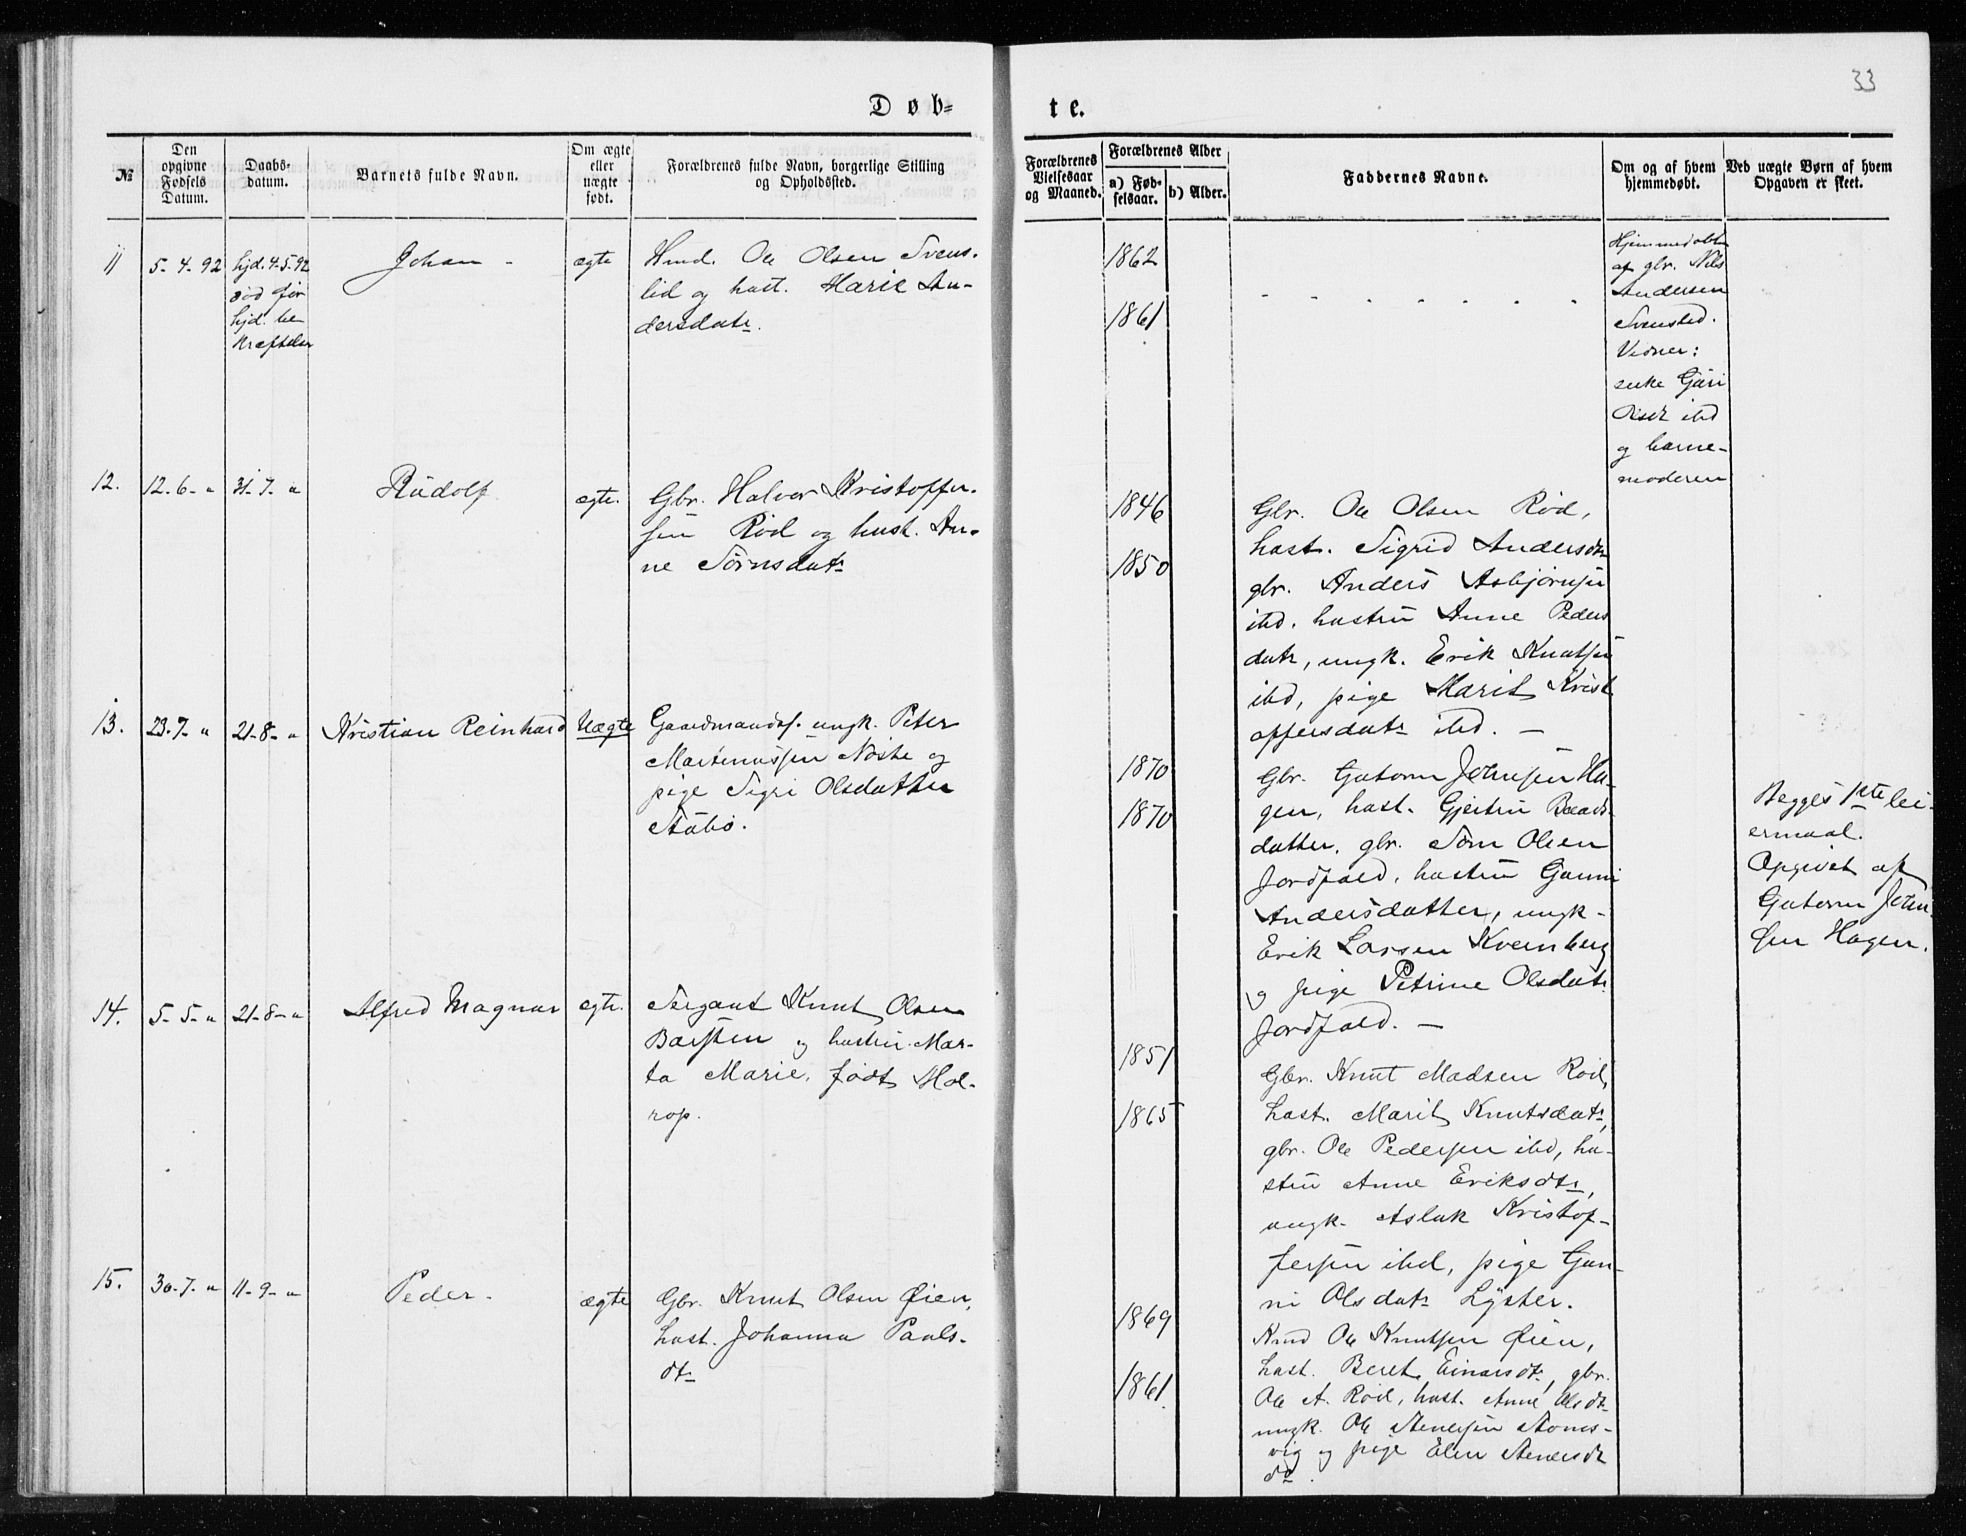 33
Døb=
te.
№
Den
opgivne
Fødsels
Datum.
Daabs-
datum.
Barnets fulde Navn.
Om ægte
eller
uægte
født.
Forældrenes fulde Navn, borgerlige Stilling
og Opholdssted.
Forældrenes
Vielsesaar
og Maaned.
Forældrenes Alder
a) Fød-
selsaar.
b) Alder.
Faddernes Navne.
Om og af hvem
hjemmedøbt.
Ved uægte Børn af hvem
Opgaven er skeet.
11
5-4-92
hjd. 4-5-92
død før
hjd. be
kræftelse
Johan -
ægte
Hmd. Ole Olsen Svens-
lid og hust. Marie An-
dersdatr.
1862
1861
Hjemmedøbt
af gbr. Nils
Andersen
Svenslid.
Vidner:
enke Guri
Olsdt ibd
og barne-
moderen
12.
12.6- "
31-7- "
Rudolf
ægte.
Gbr. Halvor Kristoffer-
sen Röd og hust. An-
ne Törnsdatr
1846
1850
Gbr. Ole Olsen Röd,
hust. Sigrid Andersdtr
gbr. Anders Asbjörnsen
ibd. hustru Anne Peders
datr, ungk. Erik Knutsen
ibd, pige Marit Krist
offersdatr ibd. —
13.
23.7- "
21-8- "
Kristian Reinhard
Uægte
Gaardmands. ungk. Peter
Martinussen Nöste og
pige Sigri Olsdatter
Stubö.
1870
1870
Gbr. Gutorm Johnsen Ha-
gen, hust. Gjertru Baards-
datter, gbr. Törn Olsen
Jordfald, hustru Gunni
Andersdatter, ungk-
Erik Larsen Kvernberg
og pige Petrine Olsdatr
Jordfald. —
Begges 1ste lei-
ermaal.
Opgivet af
Gutorm John
sen Hagen.
14.
5-5- "
21-8- "
Alfred Magnus
ægte.
Sergant Knut Olsen
Barsten og hustru Mar-
ta Marie, født Hol-
rop.
1851
1865
Gbr. Knut Madsen Röd,
hust. Marit Knutsdatr,
gbr. Ole Pedersen ibd, hu-
stru Anne Eriksdtr,
ungk. Aslak Kristof-
fersen ibd, pige Gun-
ni Olsdatr Lyster.
15.
30-7- "
11-9- "
Peder -
ægte
Gbr. Knut Olsen Öien,
hust. Johanna Pauls-
dtr
1869
1861
Ole Knutsen Öien,
hust. Beret Einarsdtr, gbr.
Ole A. Röd, hust. Anne Olsdtr
ungk. Ole Stenersen Stoms-
vig og pige Elen Stenersdt
do.